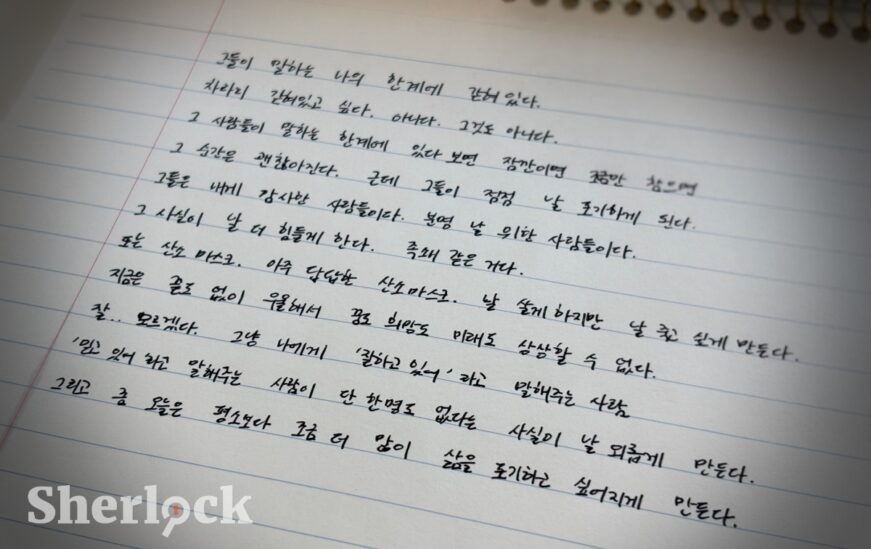 그들이 말하는 나의 한계에 갇혀 있다.
차라리 갇혀있고 싶다. 아니다. 그것도 아니다.
그 사람들이 말하는 한계에 있다 보면 잠깐이면 조금만 참으면
그 순간은 괜찮아진다. 근데 그들이 점점 날 포기하게 된다.
그들은 내게 감사한 사람들이다. 분명 날 위한 사람들이다.
그 사실이 날 더 힘들게 한다. 족쇄 같은 거다.
또는 산소 마스크. 아주 답답한 산소마스크. 날 살게 하지만 날 죽고 싶게 만든다.
지금은 끝도 없이 우울해서 꿈도 희망도 미래도 상상할 수 없다.
잘.. 모르겠다. 그냥 나에게 '잘하고 있어' 라고 말해주는 사람
'믿고 있어' 라고 말해주는 사람이 단 한명도 없다는 사실이 날 외롭게 만든다.
그리고 좀 오늘은 평소보다 조금 더 많이 삶을 포기하고 싶어지게 만든다.
Sherlock